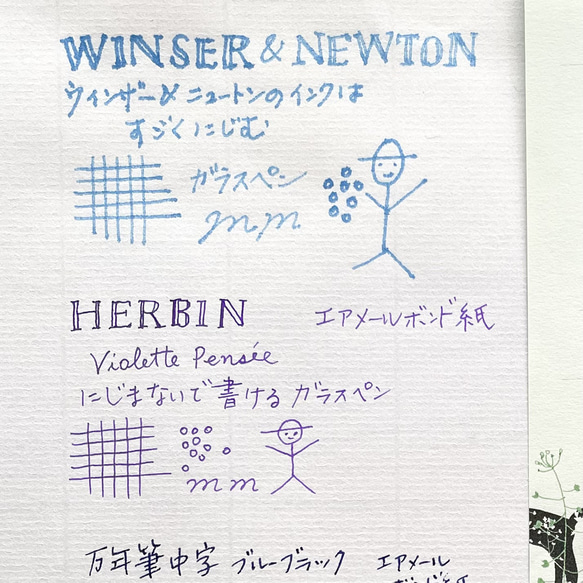 WINSER & NEWTON
ウィンザー&ニュートンのインクは
すごくにじむ
ガラスペン
mm
HERBIN
エアメールボンド紙
Violette Pensée
にじまないで書けるガラスペン
mm
万年筆中字 ブルーブラック エアメール